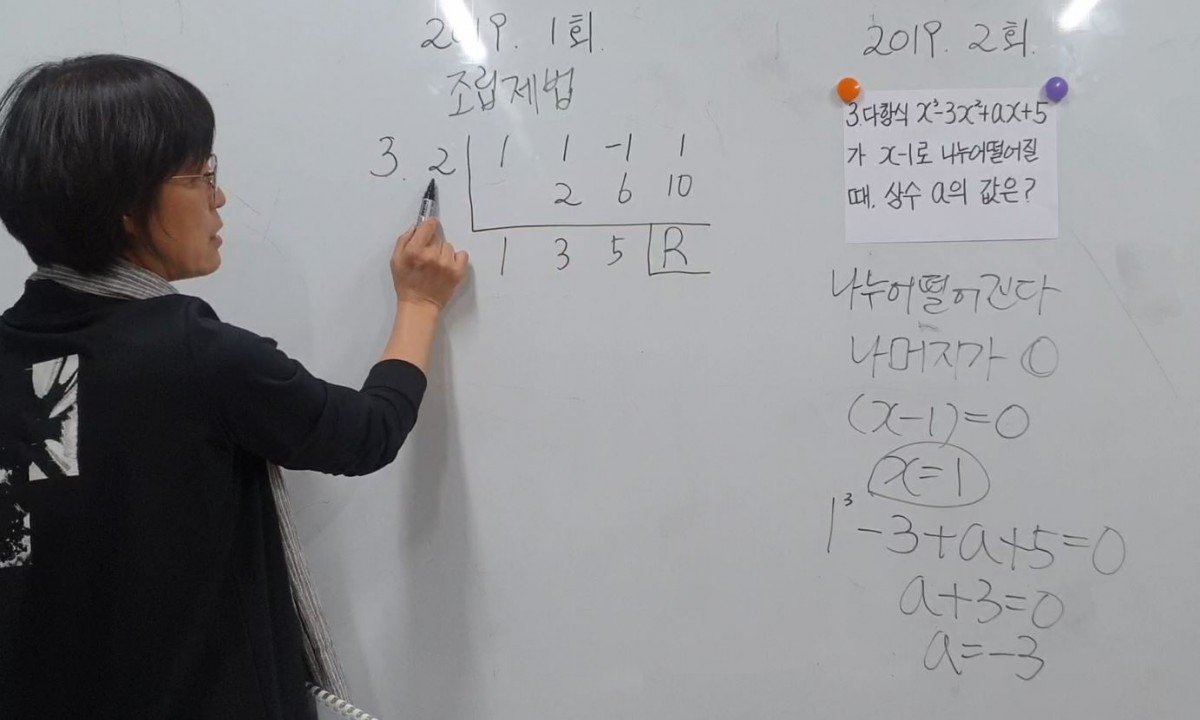 2019. 1회.
조립제법
3. 2 1 1 -1 1
2 6 10
1 3 5 R
2019. 2회.
3.다항식 x³-3x²+ax+5
가 x-1로 나누어떨어질
때, 상수 a의 값은?
나누어떨어진다
나머지가 0
(x-1)=0
x=1
1³-3+a+5=0
a+3=0
a=-3